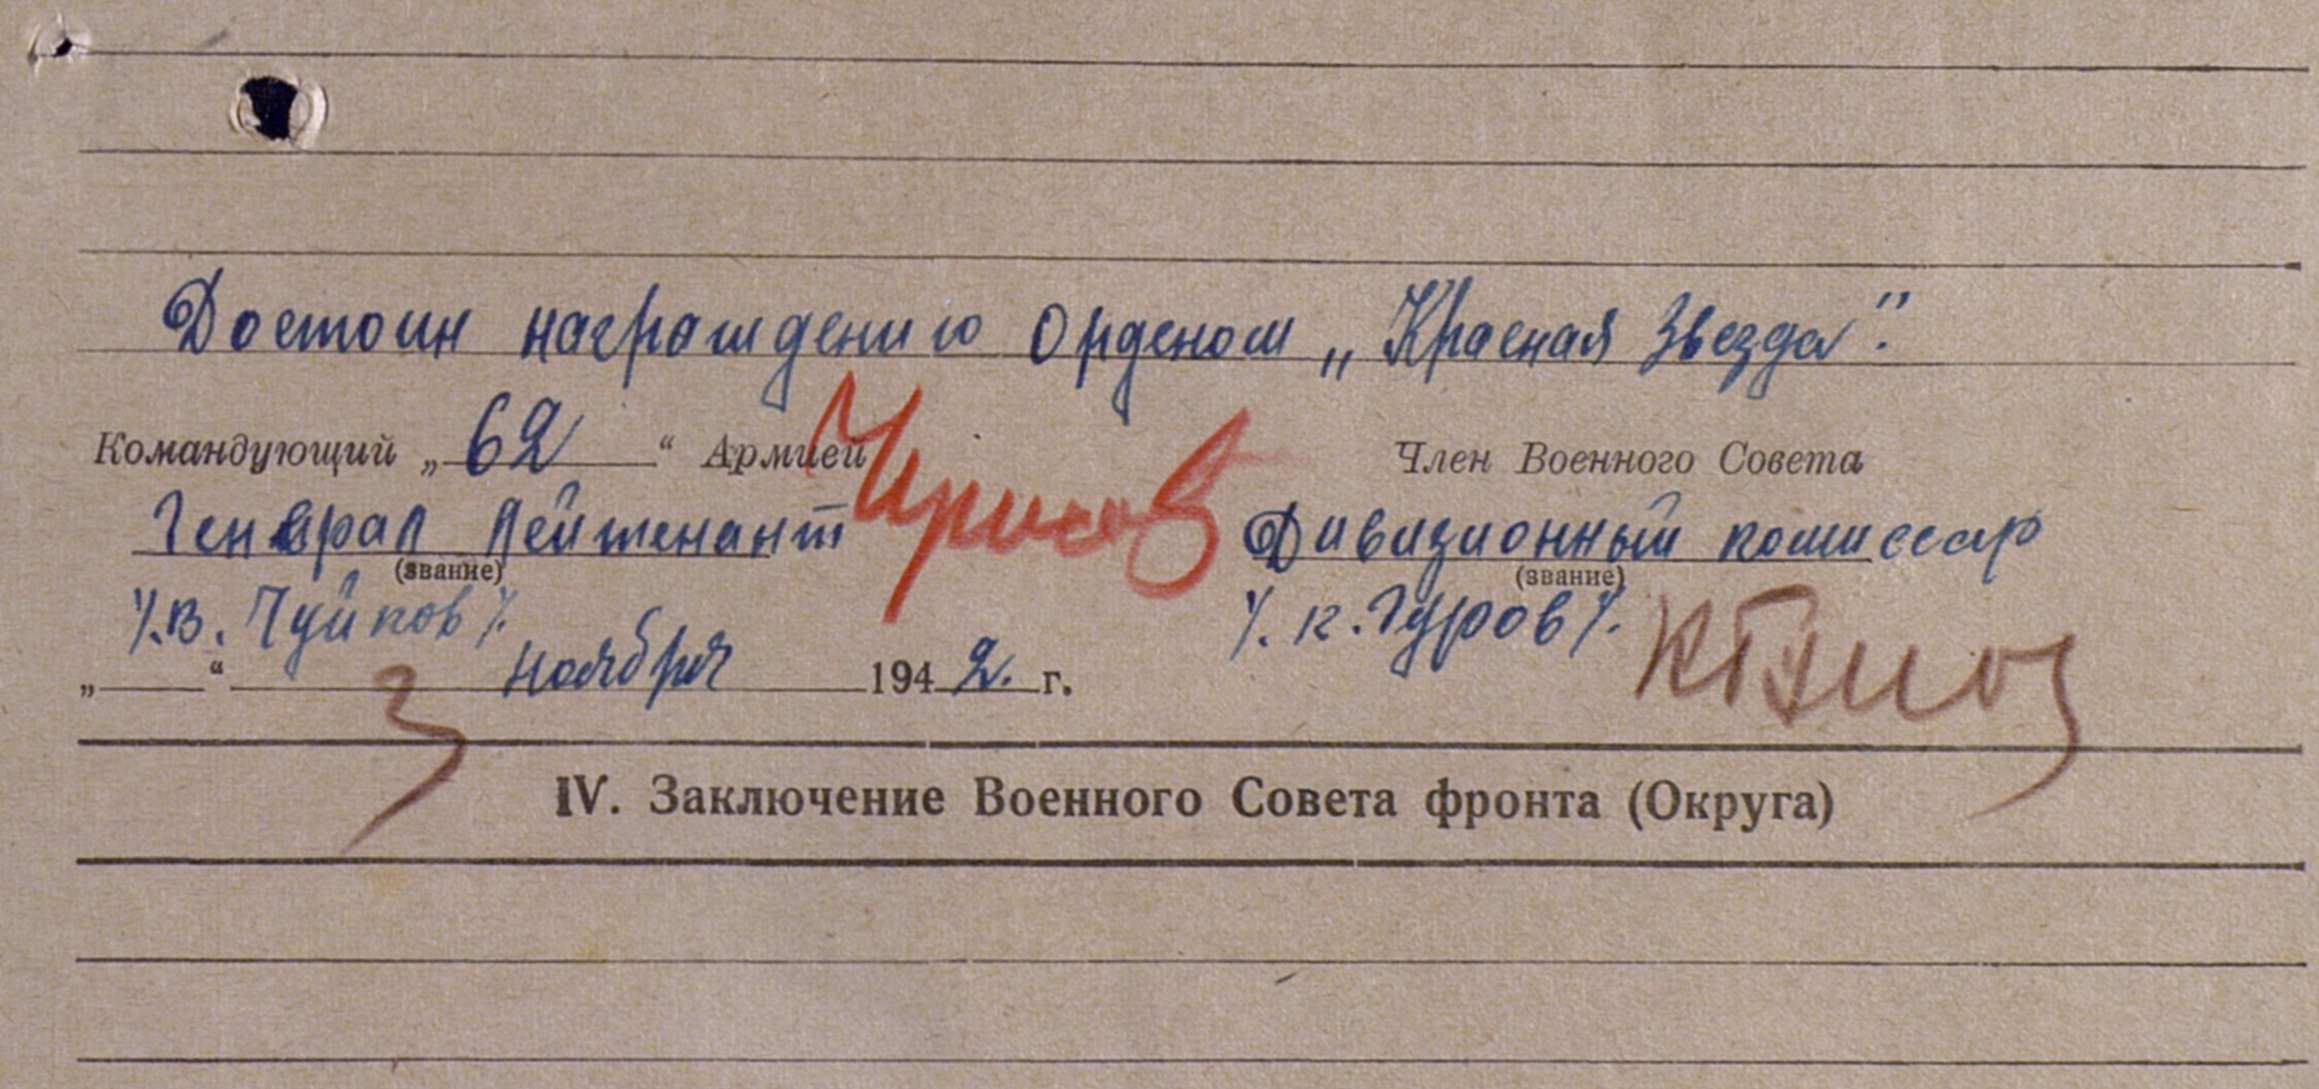 Достоин награждению Орденом „Красная Звезда".
Командующий „62“ Армией
Член Военного Совета
Генерал Лейтенант
Дивизионный комиссар
(звание)
(звание)
/.В. Чуйков/.
/. К. Гуров/.
„ “ ноября 1942. г.
3
IV. Заключение Военного Совета фронта (Округа)